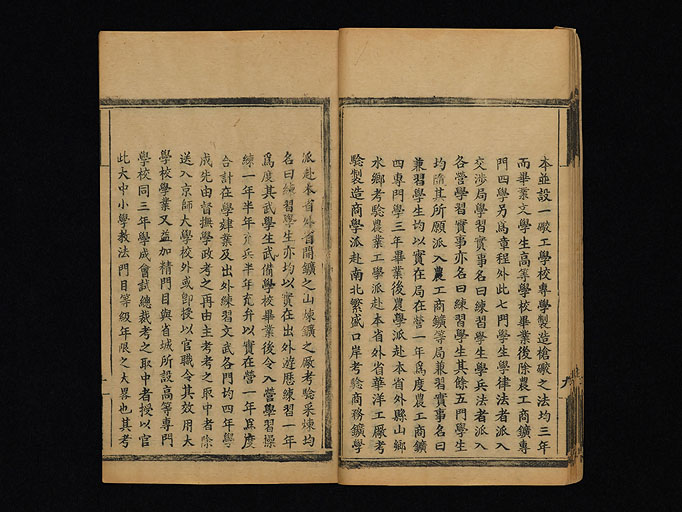 本並設一礮工學校專學製造槍礮之法均三年
而畢業文學生高等學校畢業後除農工商鑛專
門四學另爲章程外此七門學生學律法者派入
交涉局學習實事名曰練習學生學兵法者派入
各營學習實事亦名曰練習學生其餘五門學生
均隨其所願派入農工商鑛等局兼習實事名曰
兼習學生均以實在局在營一年爲度農工商鑛
四專門學三年畢業後農學派赴本省外縣山鄉
水鄉考驗農業工學派赴本省外省華洋工厰考
驗製造商學派赴南北繁盛口岸考驗商務鑛學
派赴本省外省開鑛之山煉鑛之厰考驗采煉均
名曰練習學生亦均以實在出外遊歷練習一年
爲度其武學生武備學校畢業後令入營學習操
練一年半年充兵半年充弁以實在營一年爲度
合計在學肄業及出外練習文武各門均四年學
成先由督撫學政考之再由主考考之取中者除
送入京師大學校外或卽授以官職令其效用大
學校學業又益加精門目與省城所設高等專門
學校同三年學成會試總裁考之取中者授以官
此大中小學教法門目等級年限之大畧也其考